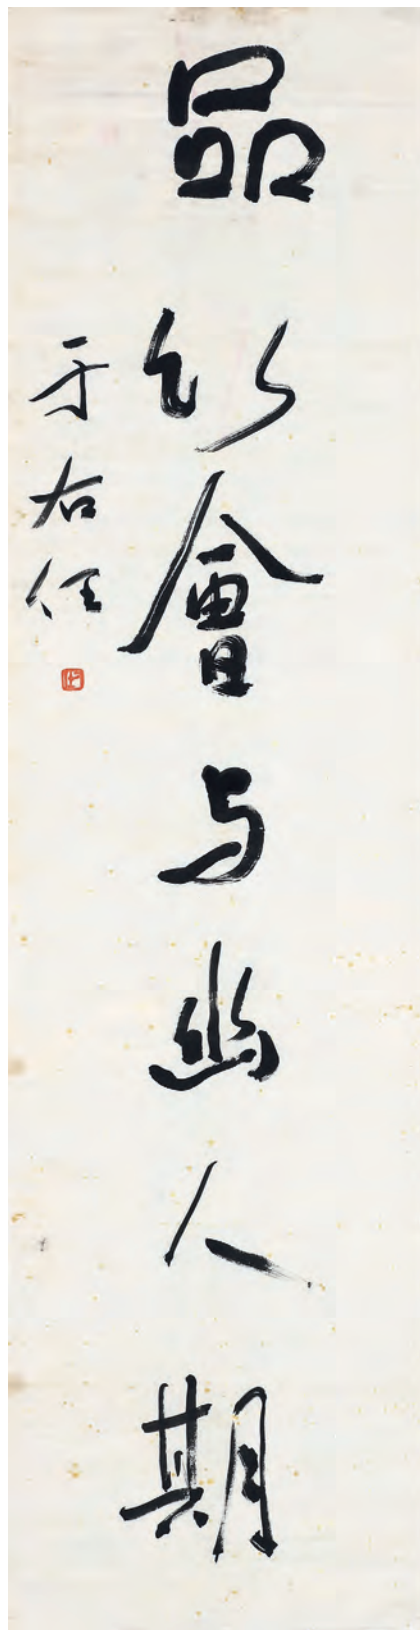 品會与幽人期
于右任